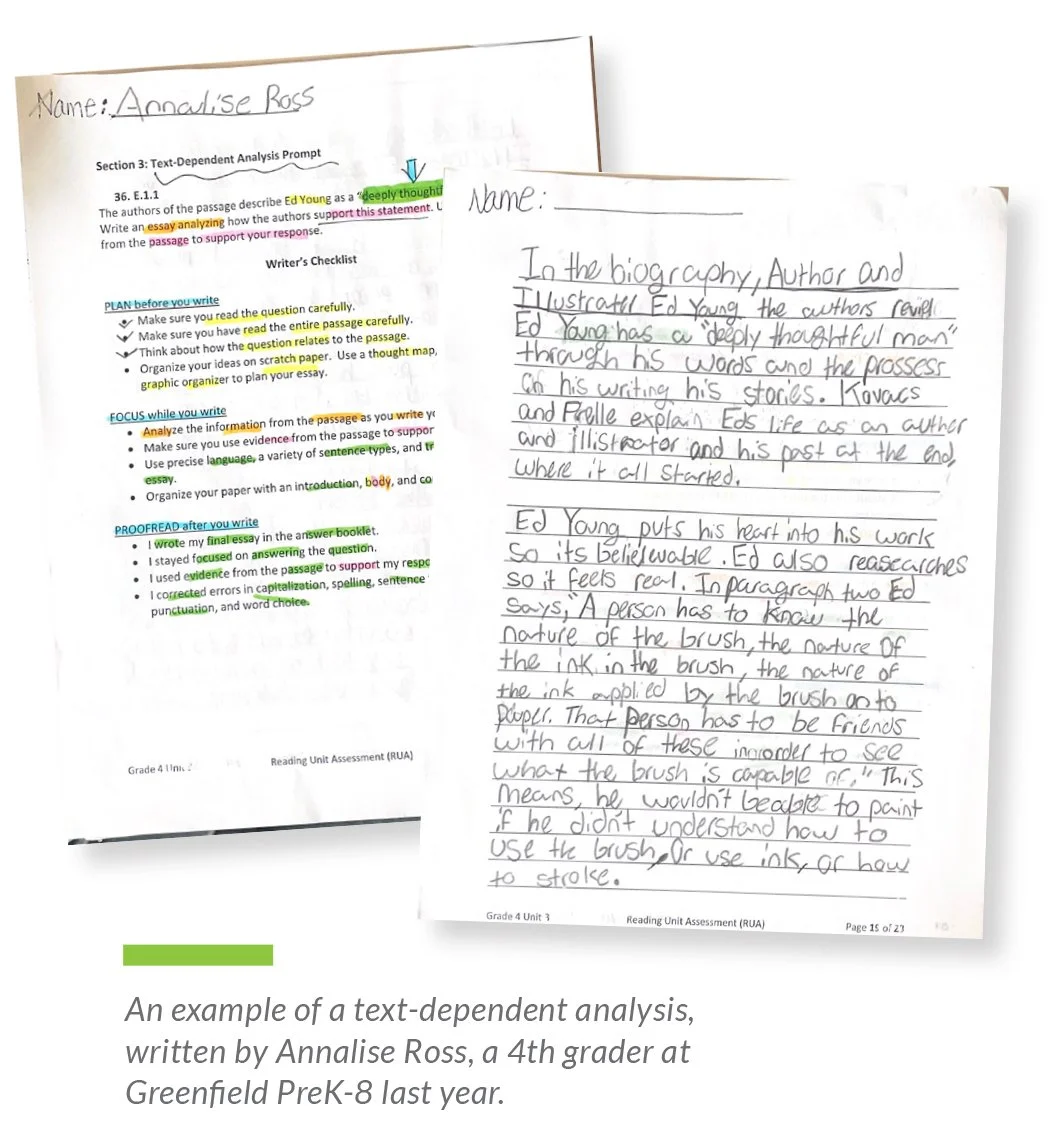 Name: Annalise Ross
Section 3: Text-Dependent Analysis Prompt
36. E.1.1
The authors of the passage describe Ed Young as a "deeply thoughtf
Write an essay analyzing how the authors support this statement. U
from the passage to support your response.
Writer's Checklist
PLAN before you write
Make sure you read the question carefully.
Make sure you have read the entire passage carefully.
Think about how the question relates to the passage.
• Organize your ideas on scratch paper. Use a thought map,
graphic organizer to plan your essay.
FOCUS while you write
• Analyze the information from the passage as you write yo
• Make sure you use evidence from the passage to suppor
• Use precise language, a variety of sentence types, and tr
essay.
• Organize your paper with an introduction, body, and co
PROOFREAD after you write
• I wrote my final essay in the answer booklet.
• I stayed focused on answering the question.
• I used evidence from the passage to support my respo
• I corrected errors in capitalization, spelling, sentence
punctuation, and word choice.
Grade 4 Unit
Reading Unit Assessment (RUA)
Name:
In the biography, Author and
Illustrater Ed Young the authors
Ed Young has a "deeply thoughtful man"
through his words and the prossess
his writing his stories. Kovacs
and Prelle explain Eds life as an auther
and illistrator and his past at the end,
where it all started.
Ed Young puts his heart into his work
so its beliewable. Ed also reasearches
so it feels real. In paragraph two Ed
says, "A person has to know the
nature of the brush, the nature of
the ink in the brush, the nature of
the ink applied by the brush on to
paper. That person has to be friends
with all of these innorder to see
what the brush is capable of." This
means, he wouldn't beable to paint
if he didn't understand how to
use the brush, Or use ink, or how
to stroke.
Grade 4 Unit 3
Reading Unit Assessment (RUA)
Page 15 of 23
An example of a text-dependent analysis,
written by Annalise Ross, a 4th grader at
Greenfield PreK-8 last year.